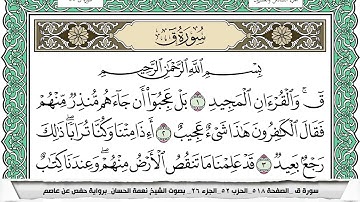 سورة ق
بسم الله الرحمن الرحيم
قٓ ۚ وَالْقُرْءَانِ الْمَجِيدِ ١ بَلْ عَجِبُوٓا۟ أَن جَآءَهُم مُّنذِرٌ مِّنْهُمْ
فَقَالَ الْكَٰفِرُونَ هَٰذَا شَىْءٌ عَجِيبٌ ٢ أَءِذَا مِتْنَا وَكُنَّا تُرَابًا ۖ ذَٰلِكَ
رَجْعٌۢ بَعِيدٌ ٣ قَدْ عَلِمْنَا مَا تَنقُصُ الْأَرْضُ مِنْهُمْ ۖ وَعِندَنَا كِتَٰبٌ
سورة ق _ الصفحة ٥١٨ _ الحزب ٥٢ _ الجزء ٢٦ _ بصوت الشيخ نعمة الحسان _ برواية حفص عن عاصم